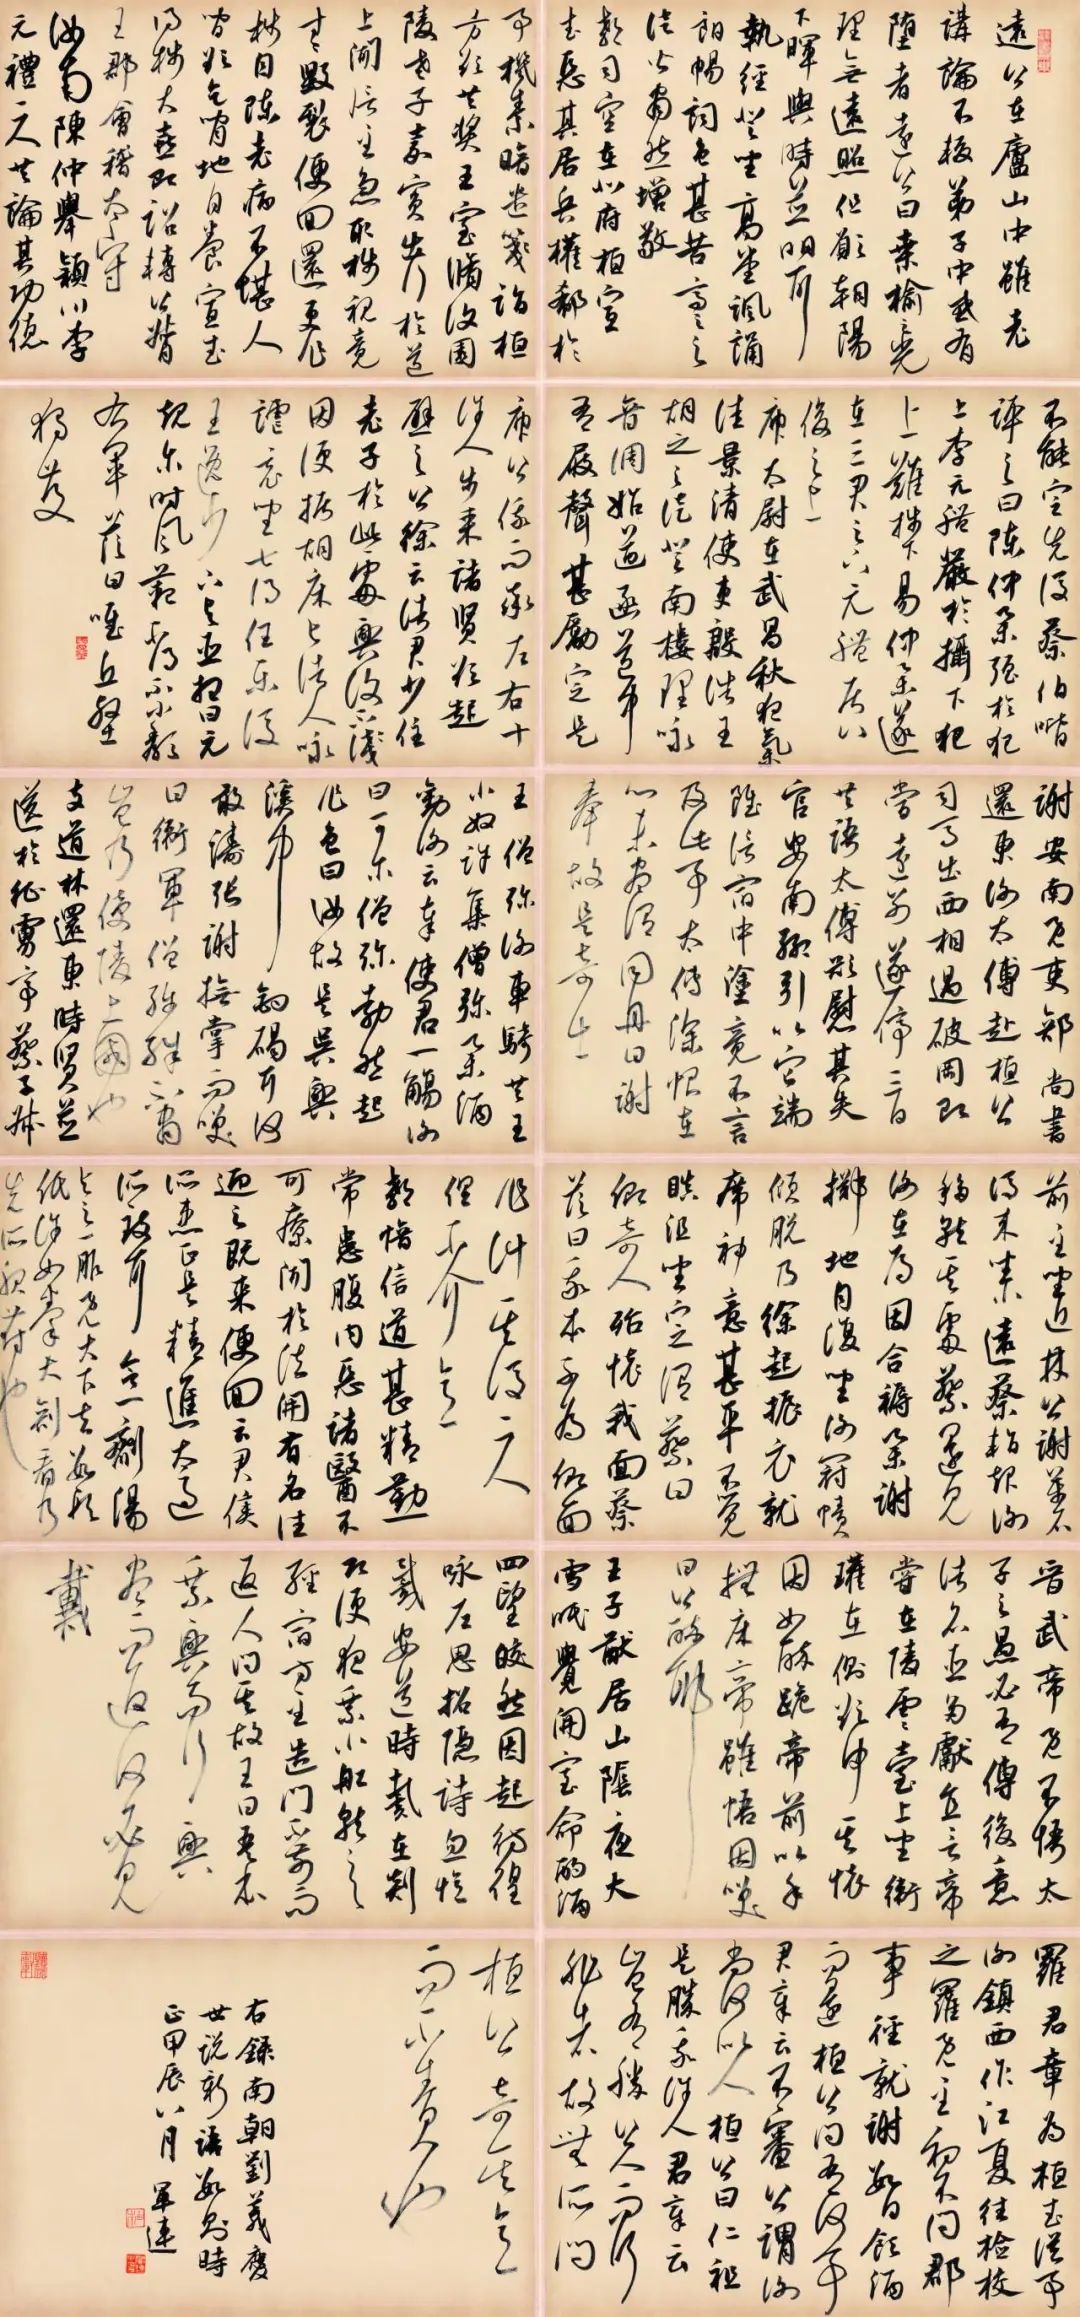 遠公在廬山中雖老
講論不輟弟子中或有
墮者遠公曰桑榆之光
理無遠照但願朝陽
之暉與時並明耳
執經登坐高諷誦
朗暢詞色甚苦高足之
徒皆肅然增敬
郗司空在北府桓宣
武惡其居兵權郗於
事機素暗遣箋詣桓
方欲共獎王室脩復園
陵世子嘉賓出行於道
上聞信至急取牋視竟
寸寸毀裂便回還更作
牋自陳老病不堪人
間欲乞閒地自養宣武
得牋大喜即詔轉公督
五郡會稽太守
汝南陳仲舉潁川李
元禮二人共論其功德
不能定先後蔡伯喈
評之曰陳仲舉強於犯
上李元禮嚴於攝下犯
上難攝下易仲舉遂
在三君之下元禮居八
俊之上
庾太尉在武昌秋夜氣
佳景清使吏殷浩王
胡之之徒登南樓理詠
音調始遒函道中
有屐聲甚厲定是
庾公俄而率左右十
許人步來諸賢欲起
避之公徐云諸君少住
老子於此處興復不淺
因便據胡床與諸人詠
謔竟坐甚得任樂後
王逸少下與丞相曰元
規爾時風範不得不小頹
右軍答曰唯丘壑
獨存
謝安南免吏部尚書
還東謝太傅赴桓公
司馬出西相遇破岡既
當遠別遂停三日
共語太傅欲慰其失
官安南輒引以它端
雖信宿中塗竟不言
及此事太傅深恨在
心未盡謂同舟曰謝
奉故是奇士
王僧彌謝車騎共王
小奴許集僧彌舉酒
勸謝云奉使君一觴謝
曰可爾僧彌勃然起
作色曰汝故是吳興
溪中釣碣耳何
敢譸張謝撫掌而笑
曰衛軍僧彌殊不肅
省乃侵陵上國也
支道林還東時賢並
送於征虜亭蔡子叔
前至坐近林公謝萬石
後來坐遠蔡暫起謝
移就其處蔡還見
謝在焉因合褥舉謝
擲地自復坐謝冠幘
傾脫乃徐起振衣就
席神意甚平不覺
瞋沮坐定謂蔡曰
卿奇人殆壞我面蔡
答曰我本不為卿面
作計其後二人
俱不介意
郗愔信道甚精勤
常患腹內惡諸醫不
可療聞於法開有名往
迎之既來便云君侯
所患正是精進太過
所致耳合一劑湯
與之一服即大下去數段
紙許如拳大剖看乃
先所服符也
晉武帝既不悟太
子之愚必有傳後意
諸名臣亦多獻直言帝
嘗在陵雲臺上坐衛
瓘在側欲申其懷
因如醉跪帝前以手
撫床帝雖悟因笑
曰公醉耶
王子猷居山陰夜大
雪眠覺開室命酌酒
四望皎然因起彷徨
詠左思招隱詩忽憶
戴安道時戴在剡
即便夜乘小船就之
經宿方至造門不前而
返人問其故王曰吾本
乘興而行興
盡而返何必見
戴
羅君章為桓武從事
謝鎮西作江夏往檢校
之羅既至初不問郡
事徑就謝數日飲酒
而還桓公問有何事
君章云不審公謂謝
尚何似人桓公曰仁祖
是勝我許人君章云
豈有勝公人而行
非者故無所問
桓公奇其意
而不責也
右錄南朝劉義慶
世說新語數則時
在甲辰八月 軍連